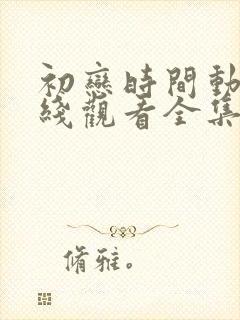 初戀時間動
綫觀看全集
脩雅。